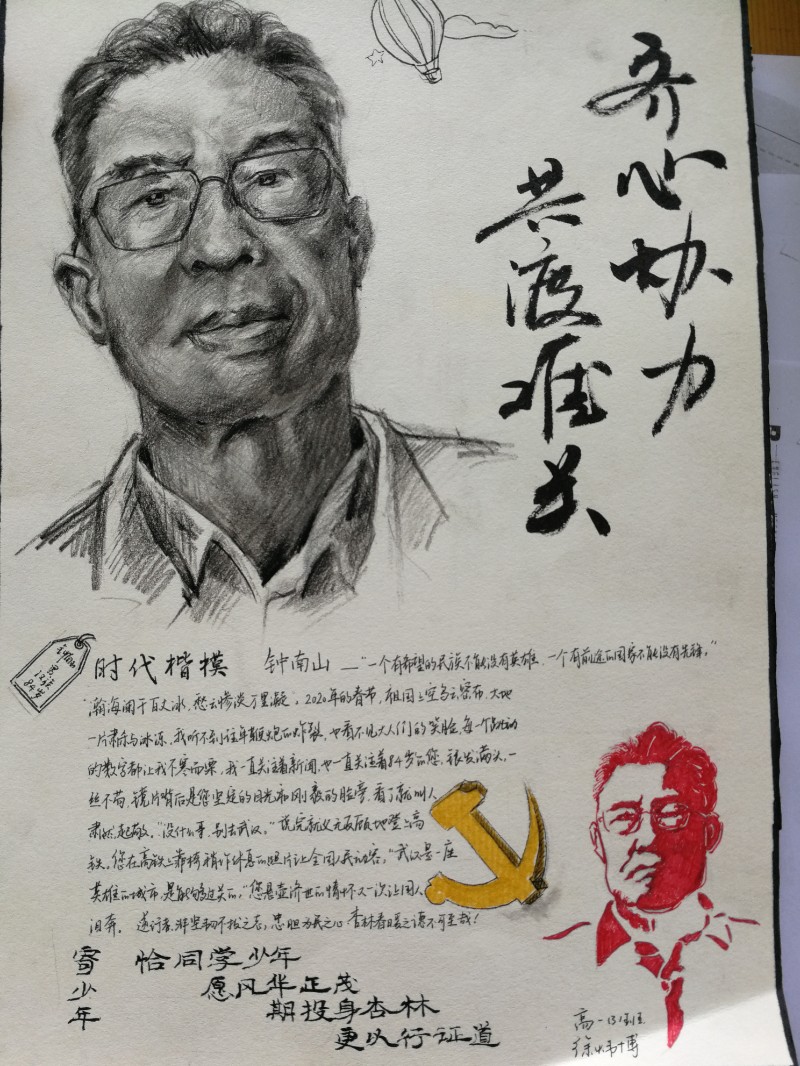 齐心协力
共渡难关
钟南山
男
汉族
84岁
时代楷模 钟南山 —“一个有希望的民族不能没有英雄，一个有前途的国家不能没有先锋。”
“瀚海阑干百丈冰，愁云惨淡万里凝”，2020年的春节，祖国上空乌云密布，大地
一片肃杀与冰凉，我听不到往年鞭炮的炸裂，也看不见大人们的笑脸，每一个跳动
的数字都让我不寒而栗，我一直关注着新闻，也一直关注着84岁的您，银发满头，一
丝不苟，镜片背后是您坚定的目光和刚毅的脸旁，看了就叫人
肃然起敬。“没什么事，别去武汉。”说完就义无反顾地登上高
铁。您在高铁上靠椅稍作休息的照片让全国人民动容，“武汉是一座
英雄的城市，是能够过关的，”您悬壶济世的情怀又一次让国人
泪奔。逆行者，非坚韧不拔之志，忠胆为民之心，杏林春暖之德不可至哉！
寄少年
恰同学少年
愿风华正茂
期投身杏林
更以行证道
高一(3)班
徐炜博